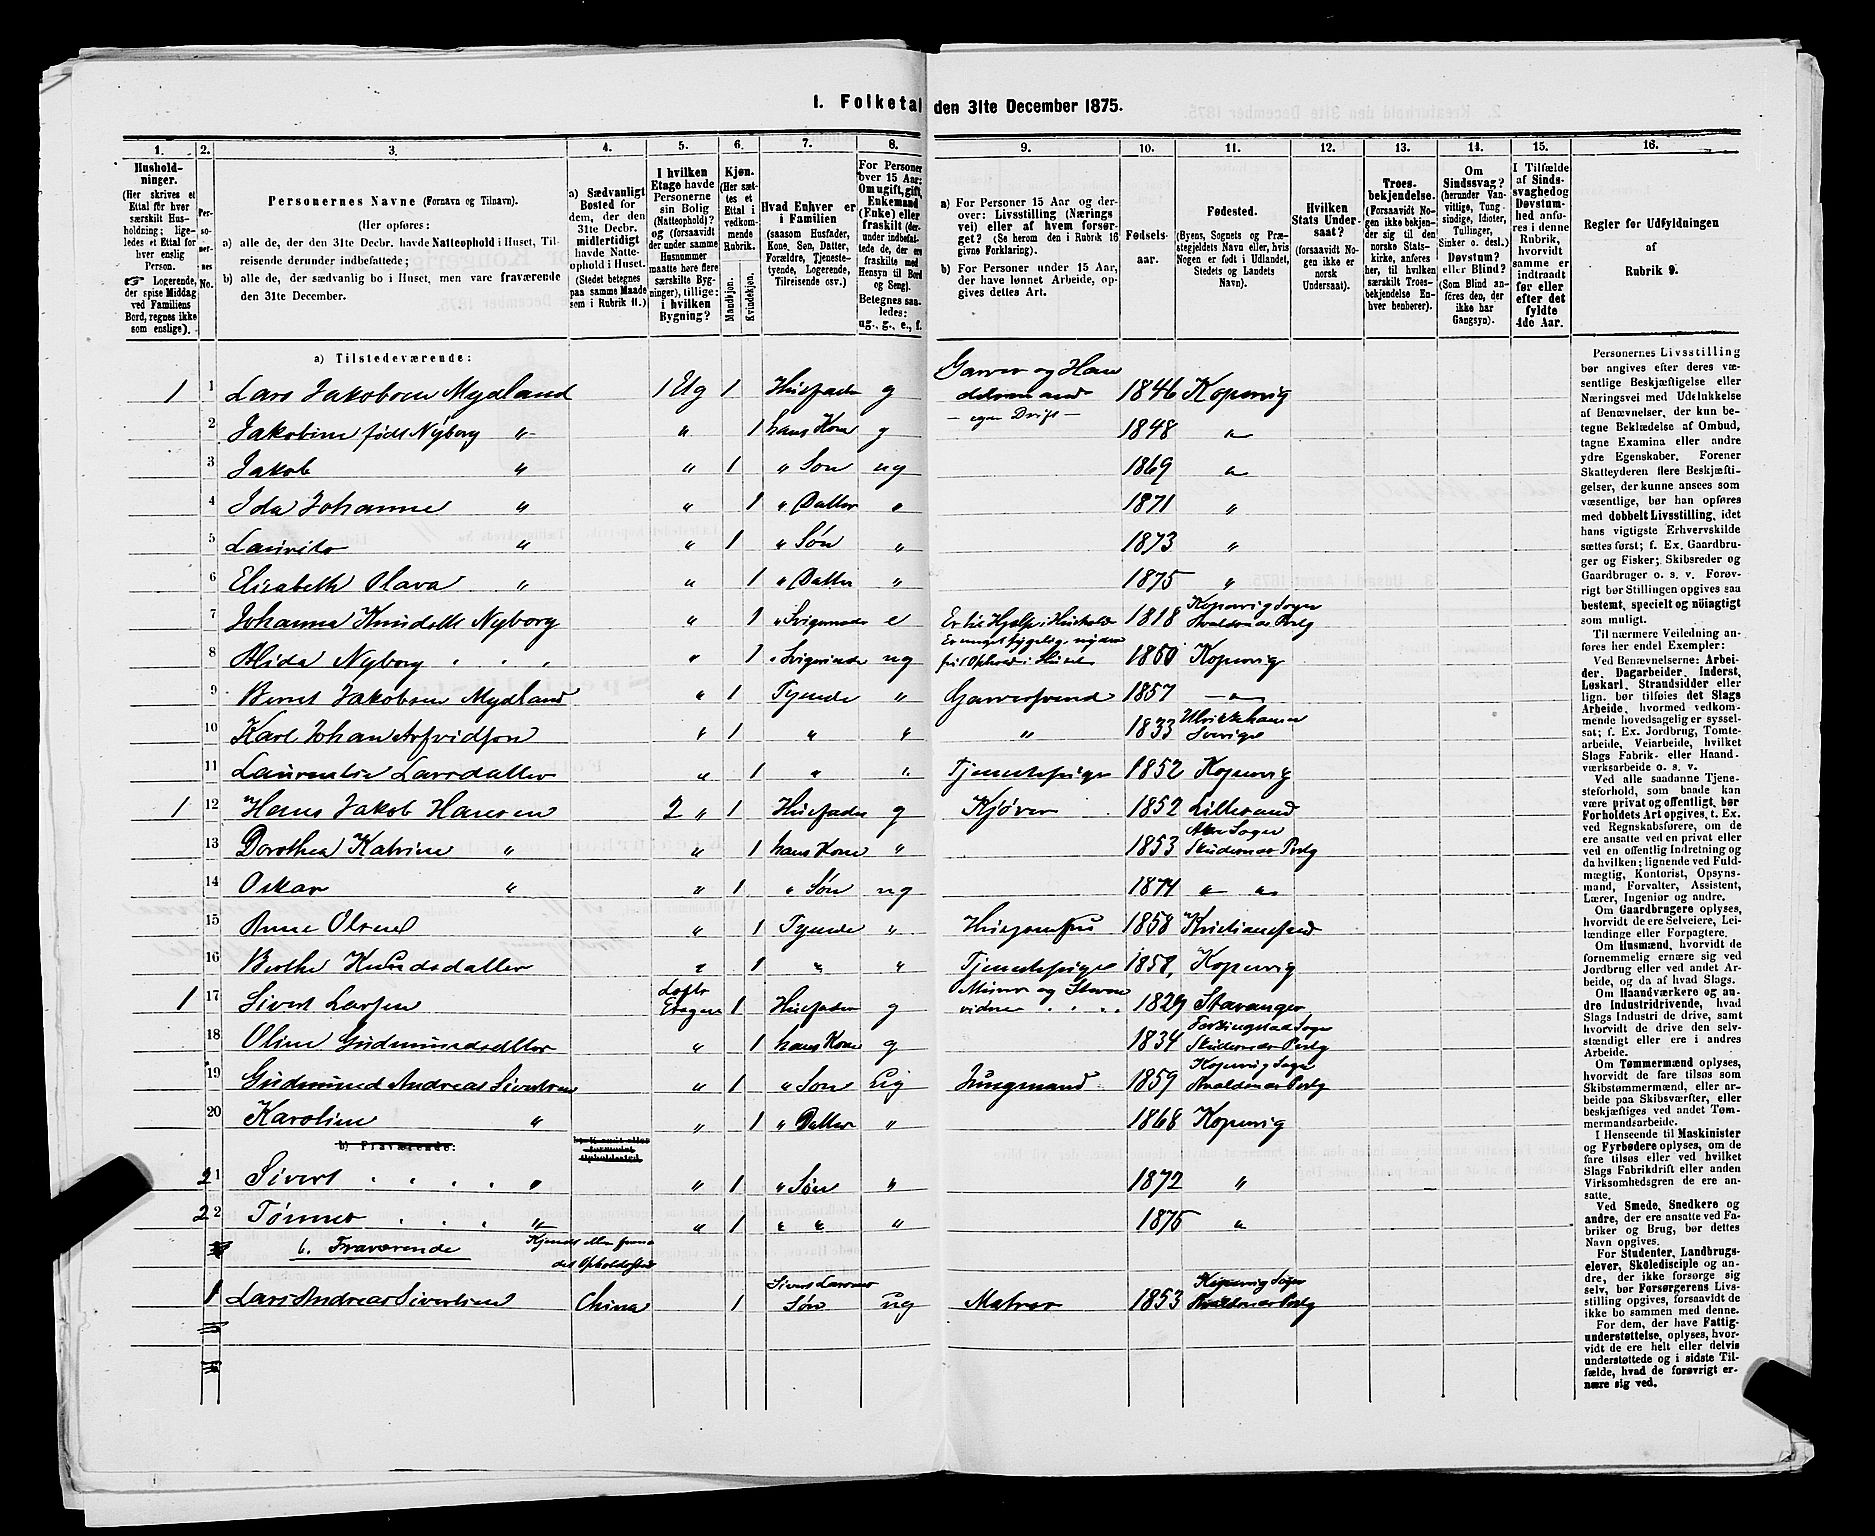 I. Folketal den 31te December 1875.
1. 2. 3. 4. 5. 6. 7. 8. 9. 10. 11. 12. 13. 14. 15. 16.
Hushold-
ninger.
(Her skrives et
Ettal for hver
særskilt Hus-
holdning; lige-
ledes et Ettal for
hver enslig
Person.
☞ Logerende,
der spise Middag
ved Familiens
Bord, regnes ikke
som enslige).
Per-
so-
ner-
nes
No.
Personernes Navne (Fornavn og Tilnavn).
(Her opføres:
a) alle de, der den 31te Decbr. havde Natteophold i Huset, Til-
reisende derunder indbefattede;
b) alle de, der sædvanlig bo i Huset, men vare fraværende
den 31te December.
a) Sædvanligt
Bosted for
dem, der den
31te Decbr.
midlertidigt
havde Natte-
ophold i Huset.
(Stedet betegnes
paa samme Maade
som i Rubrik 11.)
I hvilken
Etage havde
Personerne
sin Bolig
(Natteophold)?
og (forsaavidt
der under samme
Husnummer
maatte høre flere
særskilte Byg-
ninger), tillige:
i hvilken
Bygning?
Kjøn.
(Her sæt-
tes et
Ettal i
vedkom-
mende
Rubrik.
Mandkjøn.
Kvindekjøn.
Hvad Enhver er
i Familien
(saasom Husfader,
Kone, Søn, Datter,
Forældre, Tjeneste-
tyende, Logerende,
Tilreisende osv.)
For Personer
over 15 Aar:
Om ugift, gift,
Enkemand
(Enke) eller
fraskilt (der-
under indbefat-
tede de, der ere
fraskilte med
Hensyn til Bord
og Seng).
Betegnes saa-
ledes:
ug., g., e., f.
a) For Personer 15 Aar og der-
over: Livsstilling (Nærings
vei) eller af hvem forsør-
get? (Se herom den i Rubrik 16
givne Forklaring).
b) For Personer under 15 Aar,
der have lønnet Arbeide, op-
gives dettes Art.
Fødsels-
aar.
Fødested.
(Byens, Sognets og Præ-
stegjeldets Navn eller, hvis
Nogen er født i Udlandet,
Stedets og Landets
Navn).
I hvilken
Stats Under-
saat?
(forsaavidt No-
gen ikke er
norsk
Undersaat).
Troes-
bekjendelse.
(Forsaavidt No-
gen ikke bekjen-
der sig til den
norske Stats-
kirke, anføres
her, til hvilken
særskilt Troes-
bekjendelse En-
hver henhører).
Om
Sindssvag?
(herunder Van-
vittige, Tung-
sindige, Idioter,
Tullinger,
Sinker o. desl.)
Døvstum?
eller Blind?
(Som Blind an-
føres den, der
ikke har
Gangsyn).
I Tilfælde
af Sinds-
svaghed og
Døvstum-
hed anfø-
res i denne
Rubrik,
hvorvidt
samme er
indtraadt
før eller
efter det
fyldte
4de Aar.
Regler for Udfyldningen
af
Rubrik 9.
a) Tilstedeværende:
1 1 Lars Jakobsen Mydland 1 Etg 1 Husfader g Garver og Han
delsmand 1846 Kopervig
— egen Drift —
2 Jakobine født Nyborg „ „ 1 hans Kone g 1848 „
3 Jakob „ „ 1 „ Søn ug 1869 „
4 Ida Johanne „ „ 1 „ Datter „ 1871 „
5 Laurits „ „ 1 „ Søn „ 1873 „
6 Elisabeth Olava „ „ 1 „ Datter „ 1875 „
7 Johanna Knudsdtr Nyborg „ 1 „ Svigermoder e Er til Hjelp i Husholdn 1818 Kopervig Sogn
Avaldsnæs Prstg
8 Alida Nyborg „ 1 „ Svigerinde ug Er meget sygelig nyder
frit Ophold i Huset 1850 Kopervig
9 Bernt Jakobsen Mydland „ 1 Tyende „ Garversvend 1857 — „ —
10 Karl Johan Arfvidson „ 1 „ „ „ 1833 Ulrikehamn
Sverige
11 Laurentse Larsdatter „ 1 „ „ Tjenestepige 1852 Kopervig
1 12 Hans Jakob Hansen 2 „ 1 Husfader g Kjøver 1852 Lillesand
13 Dorothea Katrine „ „ 1 hans Kone „ 1853 Aker Sogn
Skudesnæs Prstg
14 Oskar „ „ 1 „ Søn ug 1874 „ „
15 Anne Olsen „ 1 Tyende „ Husjomfru 1858 Kristiansund
16 Berthe Knudsdatter „ 1 „ „ Tjenestepige 1858, Kopervig
1 17 Sivert Larsen Lofts
Etagen 1 Husfader g Murer og Steen
vidner 1829 Stavanger
18 Oline Gudmundsdtter „ 1 hans Kone g 1834 Ferkingstad Sogn
Skudesnæs Prstg
19 Gudmund Andreas Sivertsen „ 1 „ Søn ug Jungmand 1859 Kopervig Sogn
Avaldsnæs Prstg
20 Karoline „ „ 1 „ Datter „ 1868 Kopervig
b) Fraværende:
21 Sivert „ „ 1 „ Søn „ 1872 „
22 Tønnes „ „ 1 „ „ „ 1875 „
b. Fraværende Kjendt eller formo
det Opholdssted
1 Lars Andreas Sivertsen China 1 Sivert Larsens
Søn ug Matros 1853 Kopervig Sogn
Avaldsnæs Prstg
Personernes Livsstilling
bør angives efter deres væ-
sentlige Beskjæftigelse eller
Næringsvei med Udelukkelse
af Benævnelser, der kun be-
tegne Beklædelse af Ombud,
tagne Examina eller andre
ydre Egenskaber. Forener
Skatteyderen flere Beskjæfti-
gelser, der kunne ansees som
væsentlige, bør han opføres
med dobbelt Livsstilling, idet
hans vigtigste Erhvervskilde
sættes først; f. Ex. Gaardbru-
ger og Fisker; Skibsreder og
Gaardbruger o. s. v. Forøv-
rigt bør Stillingen opgives saa
bestemt, specielt og nøiagtigt
som muligt.
Til nærmere Veiledning an-
føres her endel Exempler:
Ved Benævnelserne: Arbei-
der, Dagarbeider, Inderst,
Løskarl, Strandsidder eller
lign. bør tilføies det Slags
Arbeide, hvormed vedkom-
mende hovedsagelig er syssel-
sat; f. Ex. Jordbrug, Tomte-
arbeide, Veiarbeide, hvilket
Slags Fabrik- eller Haand-
værksarbeide o. s. v.
Ved alle saadanne Tjene-
steforhold, som baade kan
være privat og offentligt, bør
Forholdets Art opgives, t. Ex.
ved Regnskabsførere, om de
ere ansatte ved en privat eller
ved en offentlig Indretning og
da hvilken; lignende ved Fuld-
mægtig, Kontorist, Opsyns-
mand, Forvalter, Assistent,
Lærer, Ingeniør og andre.
Om Gaardbrugere oplyses,
hvorvidt de ere Selveiere, Lei-
lændinge eller Forpagtere.
Om Husmænd, hvorvidt de
fornemmelig ernære sig ved
Jordbrug eller ved andet Ar-
beide, og da af hvad Slags.
Om Haandværkere og an-
dre Industridrivende, hvad
Slags Industri de drive, samt
hvorvidt de drive den selv-
stændigt eller ere i andres
Arbeide.
Om Tømmermænd oplyses,
hvorvidt de fare tilsøs som
Skibstømmermænd, eller ar-
beide paa Skibsværfter, eller
beskjæftiges ved andet Tøm-
mermandsarbeide.
I Henseende til Maskinister
og Fyrbødere oplyses, om de
fare tilsøs eller ved hvilket
Slags Fabrikdrift eller anden
Virksomhedsgren de ere an-
satte.
Ved Smede, Snedkere og
andre, der ere ansatte ved Fa-
briker og Brug, bør dettes
Navn opgives.
For Studenter, Landbrugs-
elever, Skoledisciple og an-
dre, der ikke forsørge sig
selv, bør Forsørgerens Livs-
stilling opgives, forsaavidt de
ikke bo sammen med denne.
For dem, der have Fattig-
understøttelse, oplyses, hvor-
vidt de ere helt eller delvis
understøttede og i sidste Til-
fælde, hvad de forøvrigt er-
nære sig ved.